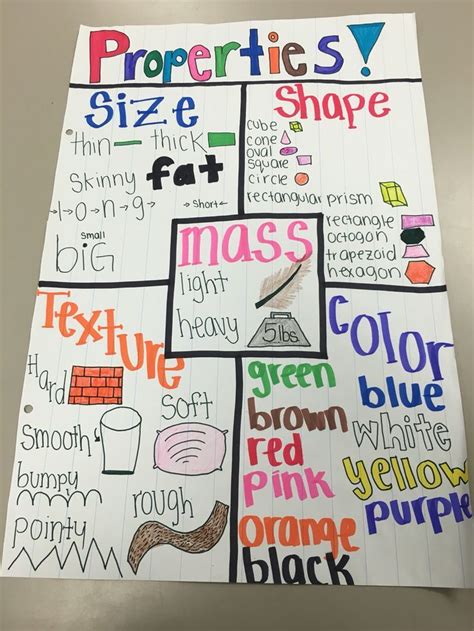 Properties!
Size
thin thick
skinny fat
l-o-n-g
short
small
big
Shape
cube
cone
oval
square
circle
rectangular prism
rectangle
octogon
trapezoid
hexagon
mass
light
heavy
5 lbs
Texture
Hard
Soft
Smooth
bumpy
rough
pointy
Color
green
blue
brown
white
red
yellow
pink
purple
orange
black